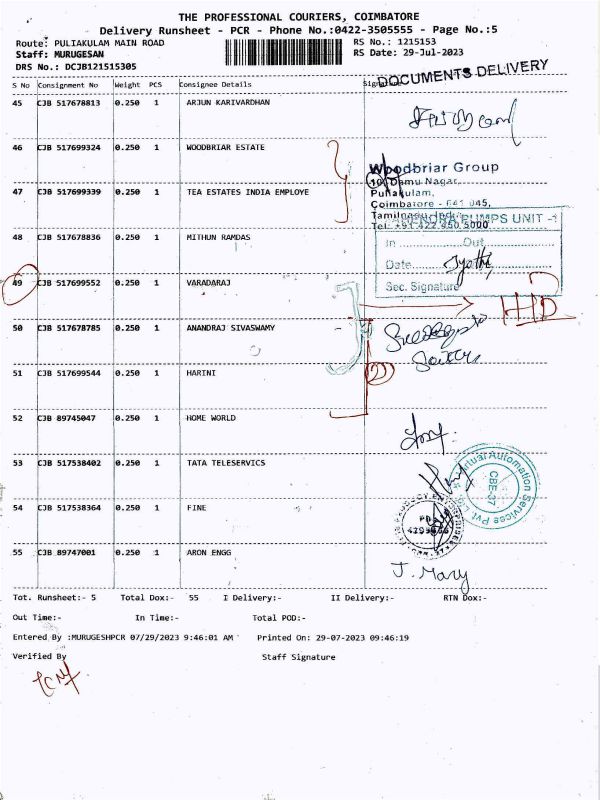 THE PROFESSIONAL COURIERS, COIMBATORE
Delivery Runsheet - PCR - Phone No.:0422-3505555 - Page No.:5
Route: PULIAKULAM MAIN ROAD RS No.: 1215153
Staff: MURUGESAN RS Date: 29-Jul-2023
DRS No.: DCJB121515305
DOCUMENTS DELIVERY
S No Consignment No Weight PCS Consignee Details
45 CJB 517678813 0.250 1 ARJUN KARIVARDHAN
46 CJB 517699324 0.250 1 WOODBRIAR ESTATE
Woodbriar Group
Damu Nagar,
Puliakulam,
47 CJB 517699339 0.250 1 TEA ESTATES INDIA EMPLOYE
Coimbatore - 641 045,
Tamilnadu, India
Tel: +91 422 450 5000
PUMPS UNIT -1
48 CJB 517678836 0.250 1 MITHUN RAMDAS
In Out
Date
49 CJB 517699552 0.250 1 VARADARAJ
Sec. Signature
50 CJB 517678785 0.250 1 ANANDRAJ SIVASWAMY
51 CJB 517699544 0.250 1 HARINI
52 CJB 89745047 0.250 1 HOME WORLD
53 CJB 517538402 0.250 1 TATA TELESERVICS
Virtual Automation Services Pvt. Ltd.
CBE-37
54 CJB 517538364 0.250 1 FINE
55 CJB 89747001 0.250 1 ARON ENGG
J. Mary
Tot. Runsheet:- 5 Total Dox:- 55 I Delivery:- II Delivery:- RTN Dox:-
Out Time:- In Time:- Total POD:-
Entered By :MURUGESHPCR 07/29/2023 9:46:01 AM Printed On: 29-07-2023 09:46:19
Verified By Staff Signature